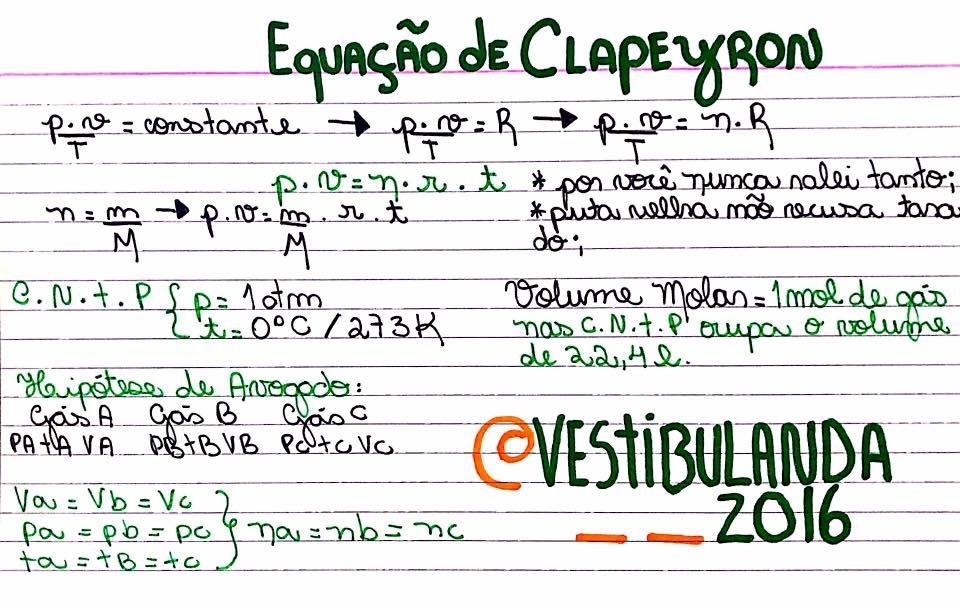 EQUAÇÃO DE CLAPEYRON
p.v/T = constante → p.v/T = R → p.v/T = n.R
p.v = n.r.t
* por você nunca ralei tanto;
n = m/M → p.v = m/M . r . t
* puta velha não recusa tara
do;
C.N.t.P { p = 1 atm
t = 0°C / 273K
Volume Molar = 1 mol de gás
nas C.N.t.P ocupa o volume
de 22,4 l.
Hipótese de Avogado:
Gás A Gás B Gás C
PA tA VA PB tB VB PC tC VC
Va = Vb = Vc
pa = pb = pc } na = nb = nc
ta = tB = tc
@VESTIBULANDA
_ _ 2016